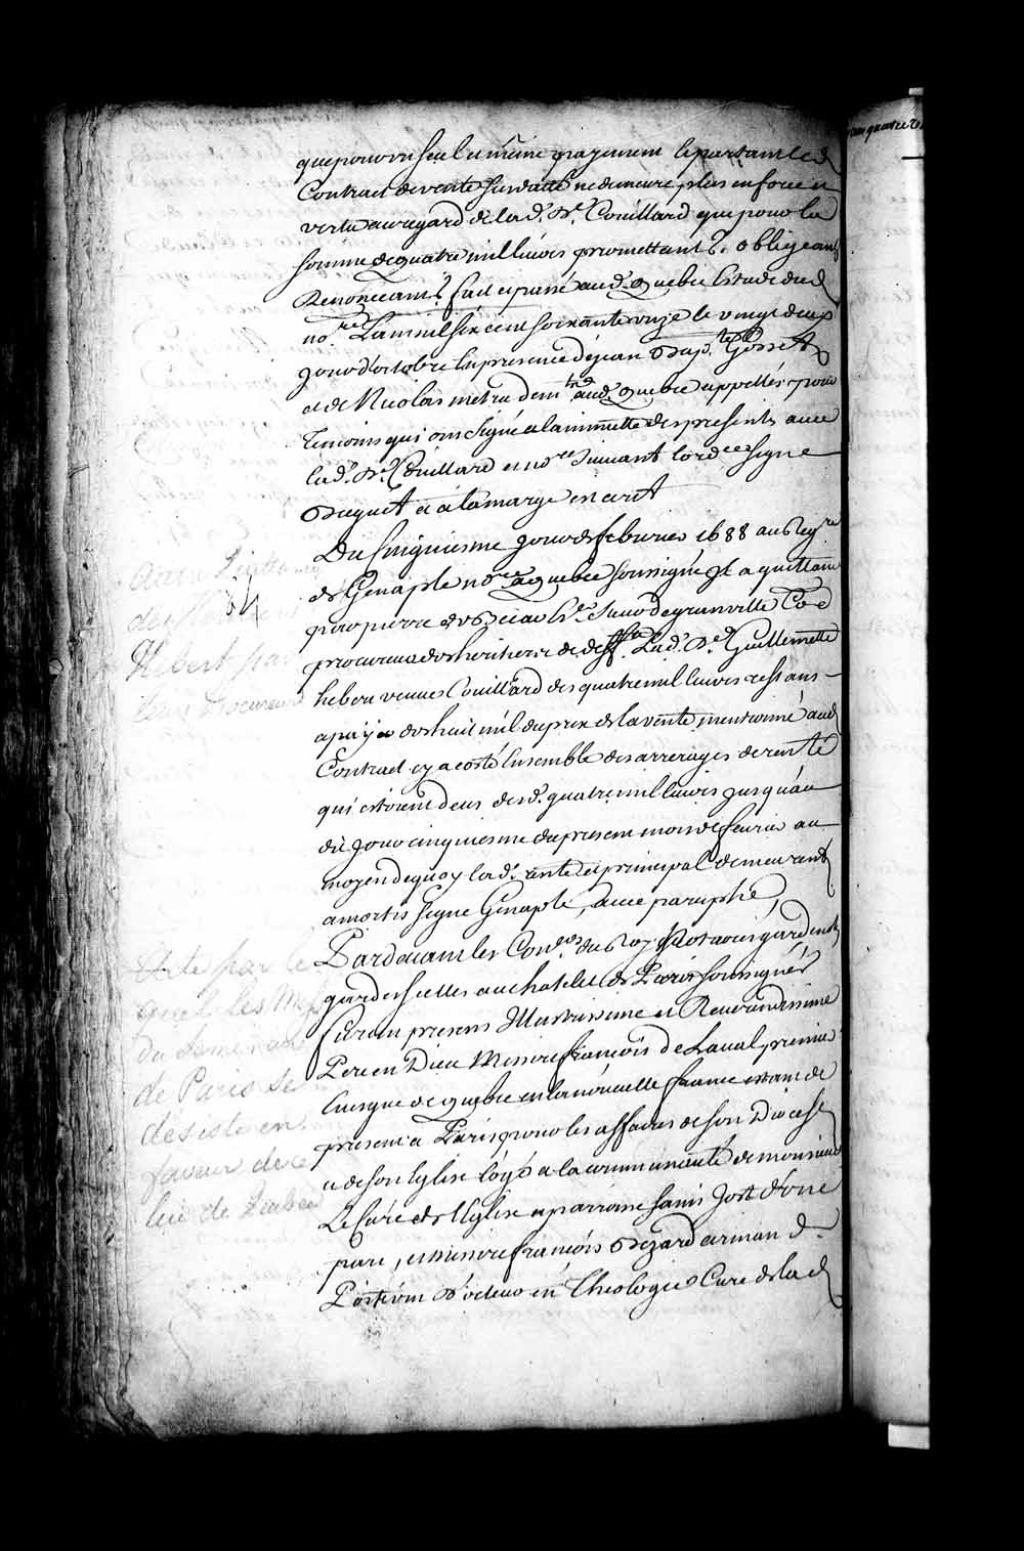 que pour un seul et même payement le partant led
Contract de vente susdatté ne demeure plus en force et
vertu au regard de la d. De. Couillard que pour la
somme de quatre mil livres promettant &. obligeant
Renonceant & fait et passé aud. Quebec Estude dud
no.re L'an mil six cent soixante onze le vingt deux
Jour d'octobre En presence de Jean Bap.te Gosset
et de Nicolas metru dem.t aud. Quebec appellés pour
temoins qui ont signé a la minutte des presents avec
lad. De. Couillard et no.re suivant lord.ce signé
Becquet et a la marge est ecrit
Du Cinquiesme Jour de febvrier 1688 au
de Genaple no.re a Quebec soussigné et a quittance
pour pierre de
procureur des heritiers de deff. Lad. De. Guillemette
hebert veuve Couillard des quatre mil livres restans
a payer des huit mil du prix de la vente mentionné aud
Contract cy a costé Ensemble des arrerages de rente
qui estoient deus desd. quatre mil livres jusqu'au
dit Jour cinquiesme du present mois de fevrier au
moyen de quoy lad. rente et principal demeurent
amortis signé Genaple, avec paraphe,
Pardevant les Con.ers du Roy Notaires gardenottes
gardescelles au chatelet de Paris soussignés
furent presens Illustrissime et Reverendissime
Pere en Dieu Messire françois de Laval, premier
Evesque de quebec en la nouvelle france estant de
present a Paris pour les affaires de son Diocese
et de son Eglise logé a la communauté de monsieur
Le Curé de l'Eglise et parroisse saint Josse d'une
part, et Messire françois Bezard
Docteur en Theologie Curé de la d
54
Hebert par
leurs Procureurs
Acte par le
quel les Mrs
du Seminaire
de Paris se
desiste en
faveur de ce
lui de Quebec